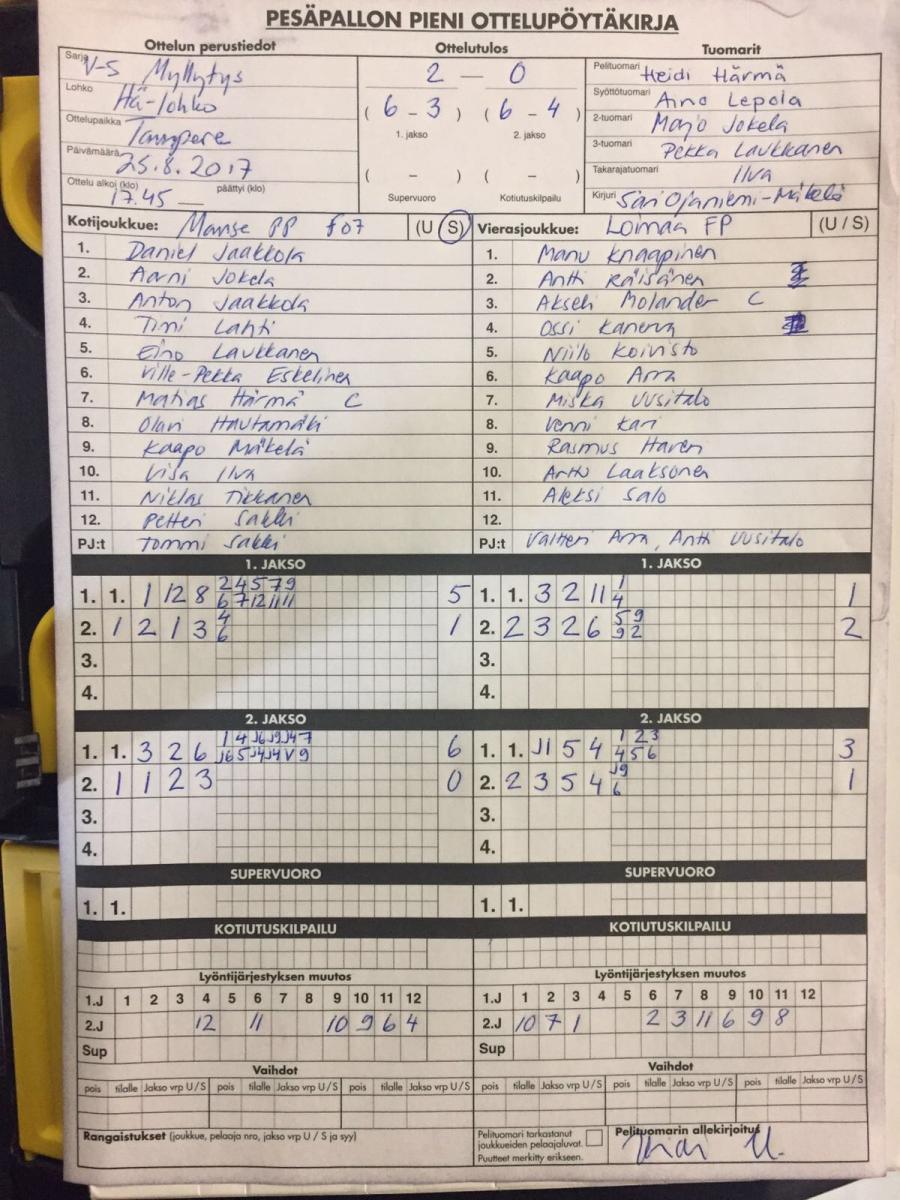 PESÄPALLON PIENI OTTELUPÖYTÄKIRJA
Ottelun perustiedot Ottelutulos Tuomarit
Sarja V-S Myllytys
Lohko Hä-lohko
Ottelupaikka Tampere
Päivämäärä 25.8.2017
Ottelu alkoi (klo) 17.45 päättyi (klo)
2 — 0
( 6 - 3 ) ( 6 - 4 )
1. jakso 2. jakso
( - ) ( - )
Supervuoro Kotiutuskilpailu
Pelituomari Heidi Härmä
Syöttötuomari Aino Lepola
2-tuomari Marjo Jokela
3-tuomari Pekka Laukkanen
Takarajatuomari Ilva
Kirjuri Sari Ojaniemi-Mäkelä
Kotijoukkue: Manse PP f07 (U S)
1. Daniel Jaakkola
2. Aarni Jokela
3. Anton Jaakkola
4. Timi Lahti
5. Eino Laukkanen
6. Ville-Pekka Eskelinen
7. Matias Härmä C
8. Olavi Hautamäki
9. Kaapo Mäkelä
10. Visa Ilva
11. Niklas Tikkanen
12. Petteri Sakki
PJ:t Tommi Sakki
Vierasjoukkue: Loimaa FP (U / S)
1. Manu Knaapinen
2. Antti Räisänen
3. Akseli Molander C
4. Ossi Kanerva
5. Niilo Koivisto
6. Kaapo Arra
7. Miska Uusitalo
8. Venni Kari
9. Rasmus Haren
10. Arttu Laaksonen
11. Aleksi Salo
12.
PJ:t Valtteri Arra, Antti Uusitalo
1. JAKSO
1. 1. 1 12 8 2 4 5 7 7 9 5
6 7 12 11 11
2. 1 2 1 3 4 1
6
3.
4.
1. JAKSO
1. 1. 3 2 11 1 1
4
2. 2 3 2 6 5 9 2
9 2
3.
4.
2. JAKSO
1. 1. 3 2 6 1 4 J6 J9 J4 7 6
J6 5 J4 J4 V 9
2. 1 1 2 3 0
3.
4.
2. JAKSO
1. 1. J1 5 4 1 2 3 3
4 5 6
2. 2 3 5 4 J9 1
6
3.
4.
SUPERVUORO SUPERVUORO
1. 1. 1. 1.
KOTIUTUSKILPAILU KOTIUTUSKILPAILU
Lyöntijärjestyksen muutos
1.J 1 2 3 4 5 6 7 8 9 10 11 12
2.J 12 11 10 9 6 4
Sup
Vaihdot
pois tilalle Jakso vrp U / S pois tilalle Jakso vrp U / S pois tilalle Jakso vrp U / S
Rangaistukset (joukkue, pelaaja nro, jakso vrp U / S ja syy)
Lyöntijärjestyksen muutos
1.J 1 2 3 4 5 6 7 8 9 10 11 12
2.J 10 7 1 2 3 11 6 9 8
Sup
Vaihdot
pois tilalle Jakso vrp U / S pois tilalle Jakso vrp U / S pois tilalle Jakso vrp U / S
Pelituomari tarkastanut
joukkueiden pelaajaluvat.
Puutteet merkitty erikseen.
Pelituomarin allekirjoitus